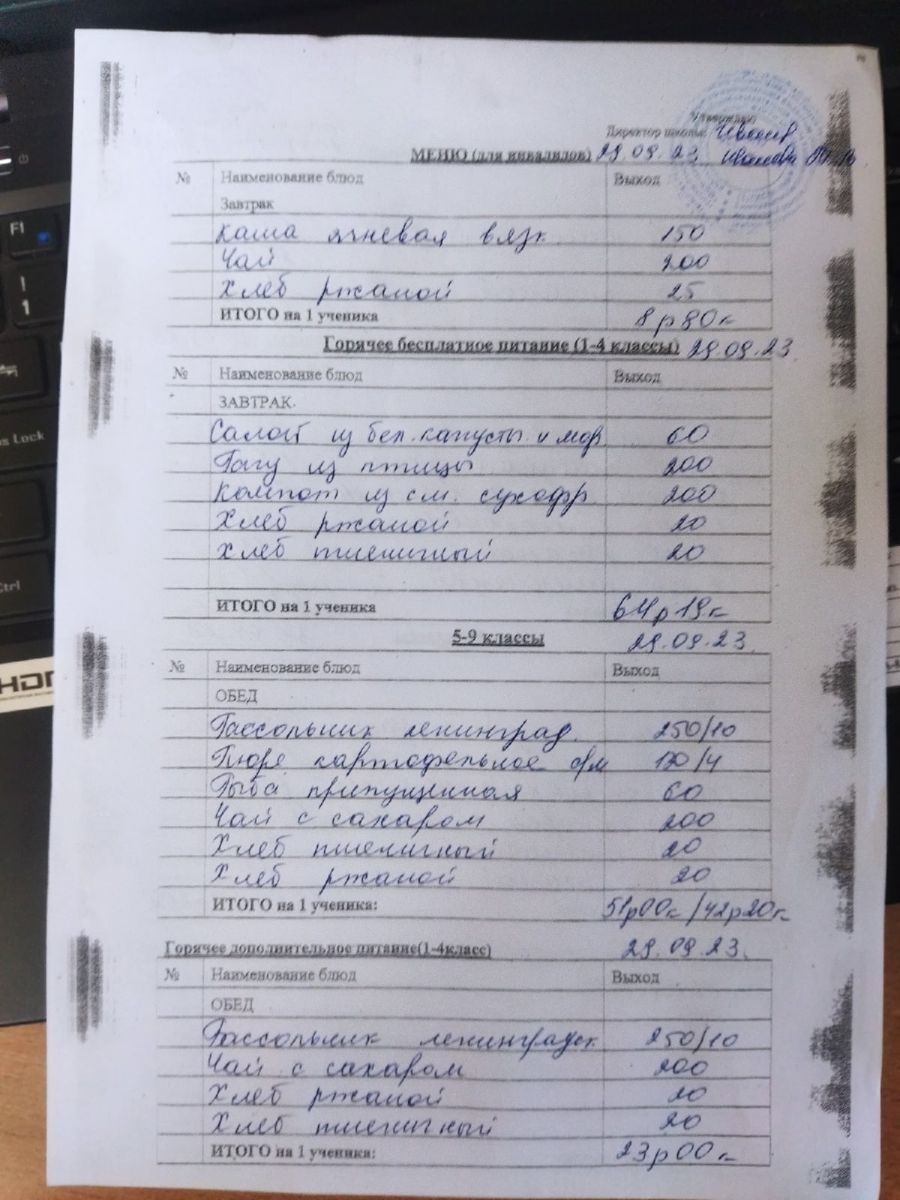 Утверждаю
Директор школы:
МЕНЮ (для инвалидов) 29.09.23 Иванова
№ Наименование блюд Выход
Завтрак
Каша ячневая вязк. 150
Чай 200
Хлеб ржаной 25
ИТОГО на 1 ученика 8р80к
Горячее бесплатное питание (1-4 классы) 29.09.23
№ Наименование блюд Выход
ЗАВТРАК.
Салат из бел. капусты и мор 60
Рагу из птицы 200
Компот из см. сухофр 200
Хлеб ржаной 20
Хлеб пшеничный 20
ИТОГО на 1 ученика 64р19к
5-9 классы 29.09.23
№ Наименование блюд Выход
ОБЕД
Рассольник ленинград. 250/10
Пюре картофельное с/м /4
Рыба припущенная 60
Чай с сахаром 200
Хлеб пшеничный 20
Хлеб ржаной 20
ИТОГО на 1 ученика: 51р00к/42р20к
Горячее дополнительное питание(1-4класс) 29.09.23.
№ Наименование блюд Выход
ОБЕД
Рассольник ленинградск. 250/10
Чай с сахаром 200
Хлеб ржаной 20
Хлеб пшеничный 20
ИТОГО на 1 ученика: 23р00к
F1
1
s Lock
Ctrl